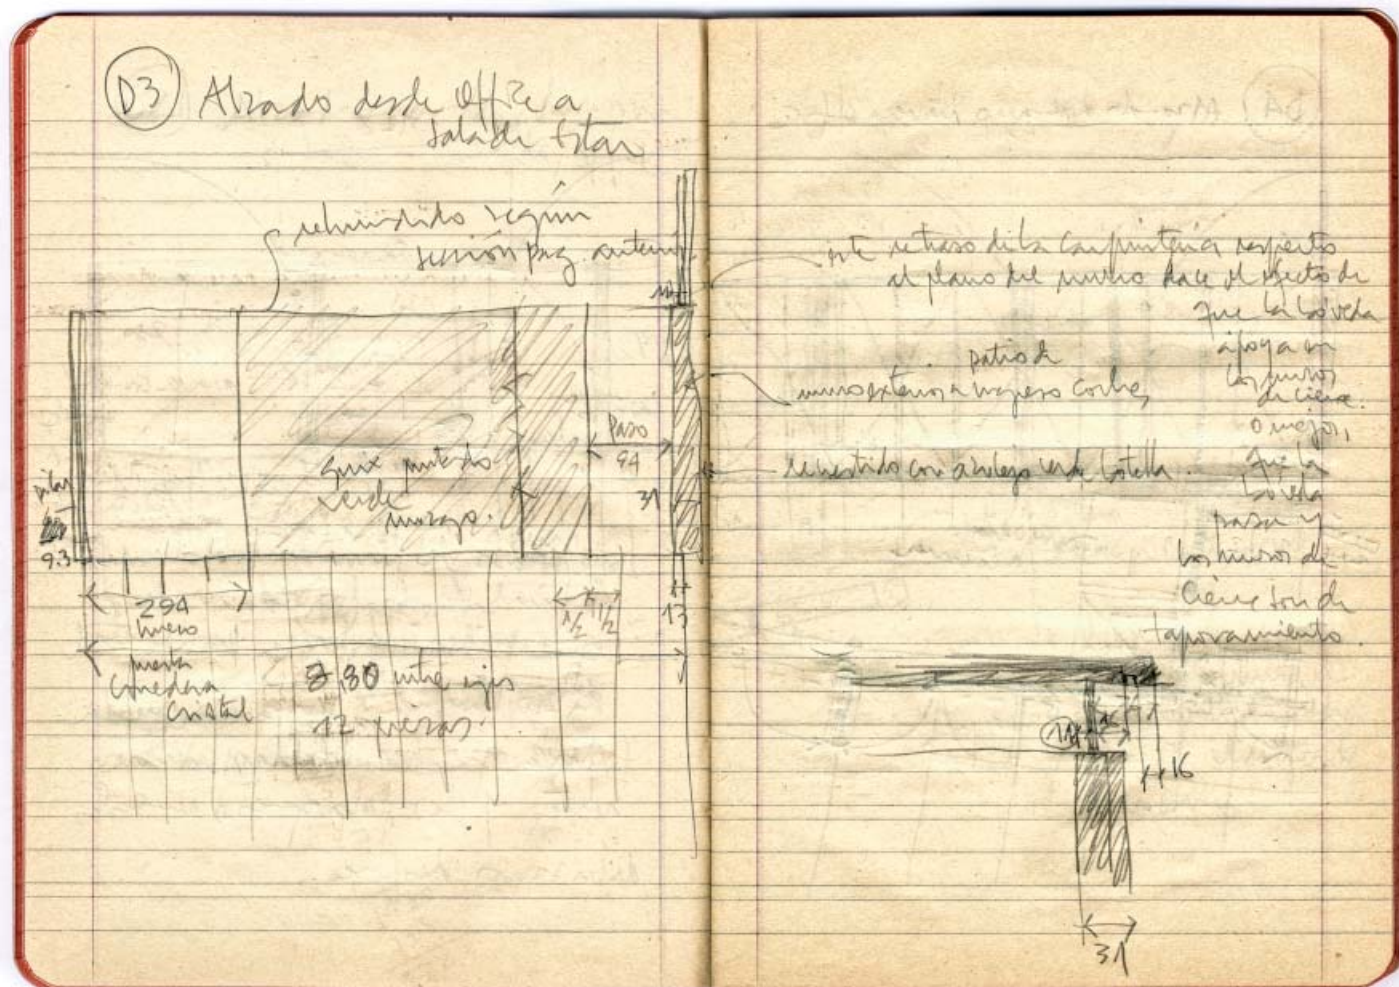 D3 Alzado desde office a
sala de Estar
rehundido según
sección pag. anterior
pilar
9.3
guix pintado
verde
musgo.
Paso
94
31
294
hueco
1/2 1/2
13
puerta
corredera
cristal
8,80 entre ejes
12 piezas.
este retraso de la carpintería respecto
al plano del muro hace el efecto de
que la bóveda
apoya en
los muros
de cierre.
o mejor,
que la
bóveda
pasa y
los muros de
cierre son de
taponamiento.
patio de
muro exterior a ingreso coches
revestido con azulejo verde botella.
16
31